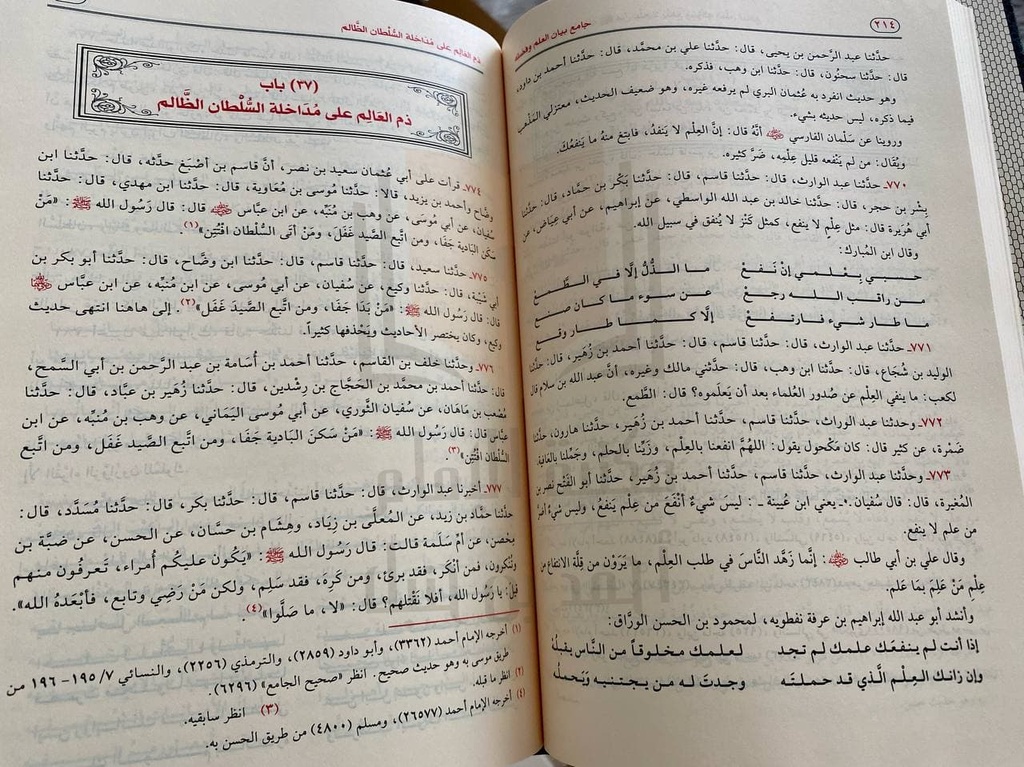 ٢١٤
جامع بيان العلم وفضله
حدَّثنا عبد الرَّحمن بن يحيى، قال: حدَّثنا علي بن محمَّد، قال: حدَّثنا أحمد بن داود،
قال: حدَّثنا سحنُون، قال: حدَّثنا ابن وهب، فذكره.
وهو حديث انفرد به عُثمان البري لم يرفعه غيره، وهو ضعيف الحديث، معتزلي المَذْهب
فيما ذكره، ليس حديثه بشيء.
وروينا عن سَلْمان الفارسي ﷺ أنَّهُ قال: إنَّ العِلْم لا يَنفدُ، فابتغ منهُ ما يَنفعُك.
ويُقال: من لم يَنْفعه قليل عِلْمِه، ضَرَّ كثيره.
٧٧٠ـ حدَّثنا عبد الوارث، قال: حدَّثنا قاسم، قال: حدَّثنا بَكْر بن حمَّاد، قال: حدَّثنا
بِشْر بن حجر، قال: حدَّثنا خالد بن عبد الله الواسطي، عن إبراهيم، عن أبي عِيَاض، عن
أبي هُرَيرة قال: مثل عِلْمٍ لا ينفع، كمثل كَنْز لا يُنفق في سبيل الله.
وقال ابن المُبارك:
حـبـي بِـعْـلـمـي إنْ نَـفـعْ ما الـذُّلُّ إلَّا في الطَّمـعْ
مـن راقـب الـلـه رجـعْ عن سـوء ما كـان صنـع
ما طـار شيء فـارتفـعْ إلَّا كـمـا طـار وقـع
٧٧١ـ حدَّثنا عبد الوارث، قال: حدَّثنا قاسم، قال: حدَّثنا أحمد بن زُهَير، قال: حدَّثنا
الوليد بن شُجَاع، قال: حدَّثنا ابن وَهْب، قال: حدَّثني مالك وغيره، أنَّ عبد الله بن سلام قال
لكعب: ما ينفي العِلْم عن صُدور العُلماء بعد أن يَعلموه؟ قال: الطَّمع.
٧٧٢ـ وحدَّثنا عبد الوراث، حدَّثنا قاسم، حدَّثنا أحمد بن زُهَير، حدَّثنا هارون، حدَّثنا
ضَمْرة، عن كثير قال: كان مَكْحول يقول: اللهُمَّ انفعنا بالعِلْم، وزَيِّنا بالحلم، وجَمِّلنا بالعَافية.
٧٧٣ـ وحدَّثنا عبد الوارث، حدَّثنا قاسم، حدَّثنا أحمد بن زُهَير، حدَّثنا أبو الفَتْح نصر بن
المُغيرة، قال: قال سُفيان ـ يعني ابن عُيينة ـ: ليسَ شيءٌ أنْفَعَ من عِلْم يَنفعُ، وليس شيءٌ أضرَّ
من علم لا ينفع.
وقال علي بن أبي طالب ﷺ: إنَّما زَهَّد النَّاس في طلب العِلْم، ما يَرَوْن من قِلَّة الانتفاع من
عِلْمِ مَنْ عَلِمَ بمَا عَلم.
وأنشد أبو عبد الله إبراهيم بن عرفة نفطويه، لمحمود بن الحسن الورَّاق:
إذا أنت لم يَنفعْك علمك لم تجد لعـلمك مخـلوقاً مـن النَّـاس يقبلُهْ
وإن زانك العِلْم الَّذي قد حملتَـه وجدتَ لـه من يجتنبيه ويَحملُه
ذم العَالِم على مُدَاخلة السُّلطان الظَّالم
(٣٧) باب
ذم العَالِم على مُدَاخلة السُّلْطان الظَّالم
٧٧٤ـ قرأت على أبي عُثمان سعيد بن نصر، أنَّ قاسم بن أصْبَغ حدَّثه، قال: حدَّثنا ابن
وضَّاح وأحمد بن يزيد، قالا: حدَّثنا مُوسى بن مُعَاوية، قال: حدَّثنا ابن مهدي، قال: حدَّثنا
سُفيان، عن أبي مُوسَى، عن وهب بن مُنَبِّه، عن ابن عبَّاس ﷺ قال: قال رَسُول الله ﷺ: «مَنْ
سَكَن البَادية جَفَا، ومن اتَّبع الصَّيد غَفَلَ، ومَنْ أتَى السُّلْطان افْتُتِن»(١).
٧٧٥ـ حدَّثنا سعيد، قال: حدَّثنا قاسم، قال: حدَّثنا ابن وضَّاح، قال: حدَّثنا أبو بكر بن
أبي شَيْبة، قال: حدَّثنا وَكيع، عن سُفيان، عن أبي مُوسى، عن ابن مُنَبِّه، عن ابن عبَّاس ﷺ
قال: قال رَسُول الله ﷺ: «مَنْ بَدَا جَفَا، ومن اتَّبع الصَّيدَ غَفَل»(٢). إلى هاهنا انتهى حديث
وكيع، وكان يختصر الأحاديث ويَحْذفها كثيراً.
٧٧٦ـ وحدَّثنا خلف بن القاسم، حدَّثنا أحمد بن أُسَامة بن عبد الرَّحمن بن أبي السَّمح،
قال: حدَّثنا أحمد بن محمَّد بن الحَجَّاج بن رِشْدين، قال: حدَّثنا زُهَير بن عبَّاد، قال: حدَّثنا
مُصْعَب بن مَاهَان، عن سُفيان الثَّوري، عن أبي مُوسَى اليَمَاني، عن وهب بن مُنَبِّه، عن ابن
عبَّاس قال: قال رَسُول الله ﷺ: «مَنْ سَكَنَ البَادية جَفَا، ومن اتَّبع الصَّيد غَفَل، ومن اتَّبع
السُّلطان افْتُتِن»(٣).
٧٧٧ـ أخبرنا عبد الوارث، قال: حدَّثنا قاسم، قال: حدَّثنا بكر، قال: حدَّثنا مُسَدَّد، قال:
حدَّثنا حمَّاد بن زيد، عن المُعَلَّى بن زيَاد، وهِشَام بن حسَّان، عن الحسن، عن ضبَّة بن
مِحْصن، عن أمِّ سَلَمة قالت: قال رَسُول الله ﷺ: «يَكُون عليكُم أمراء، تَعرفُون منهم
وتُنكرون، فمن أنْكَر، فقد برئ، ومن كَرِهَ، فقد سَلِم، ولكن مَنْ رَضِي وتابع، فأبْعَدهُ الله».
قيل: يا رَسُول الله، أفلا نَقْتلهم؟ قال: «لا، ما صَلَّوا»(٤).
(١) أخرجه الإمام أحمد (٣٣٦٢)، وأبو داود (٢٨٥٩)، والترمذي (٢٢٥٦)، والنسائي ١٩٥/٧ - ١٩٦ من
طريق موسى به وهو حديث صحيح. انظر «صحيح الجامع» (٦٢٩٦).
(٢) انظر ما قبله. (٣) انظر سابقيه.
(٤) أخرجه الإمام أحمد (٢٦٥٧٧)، ومسلم (٤٨٠٠) من طريق الحسن به.